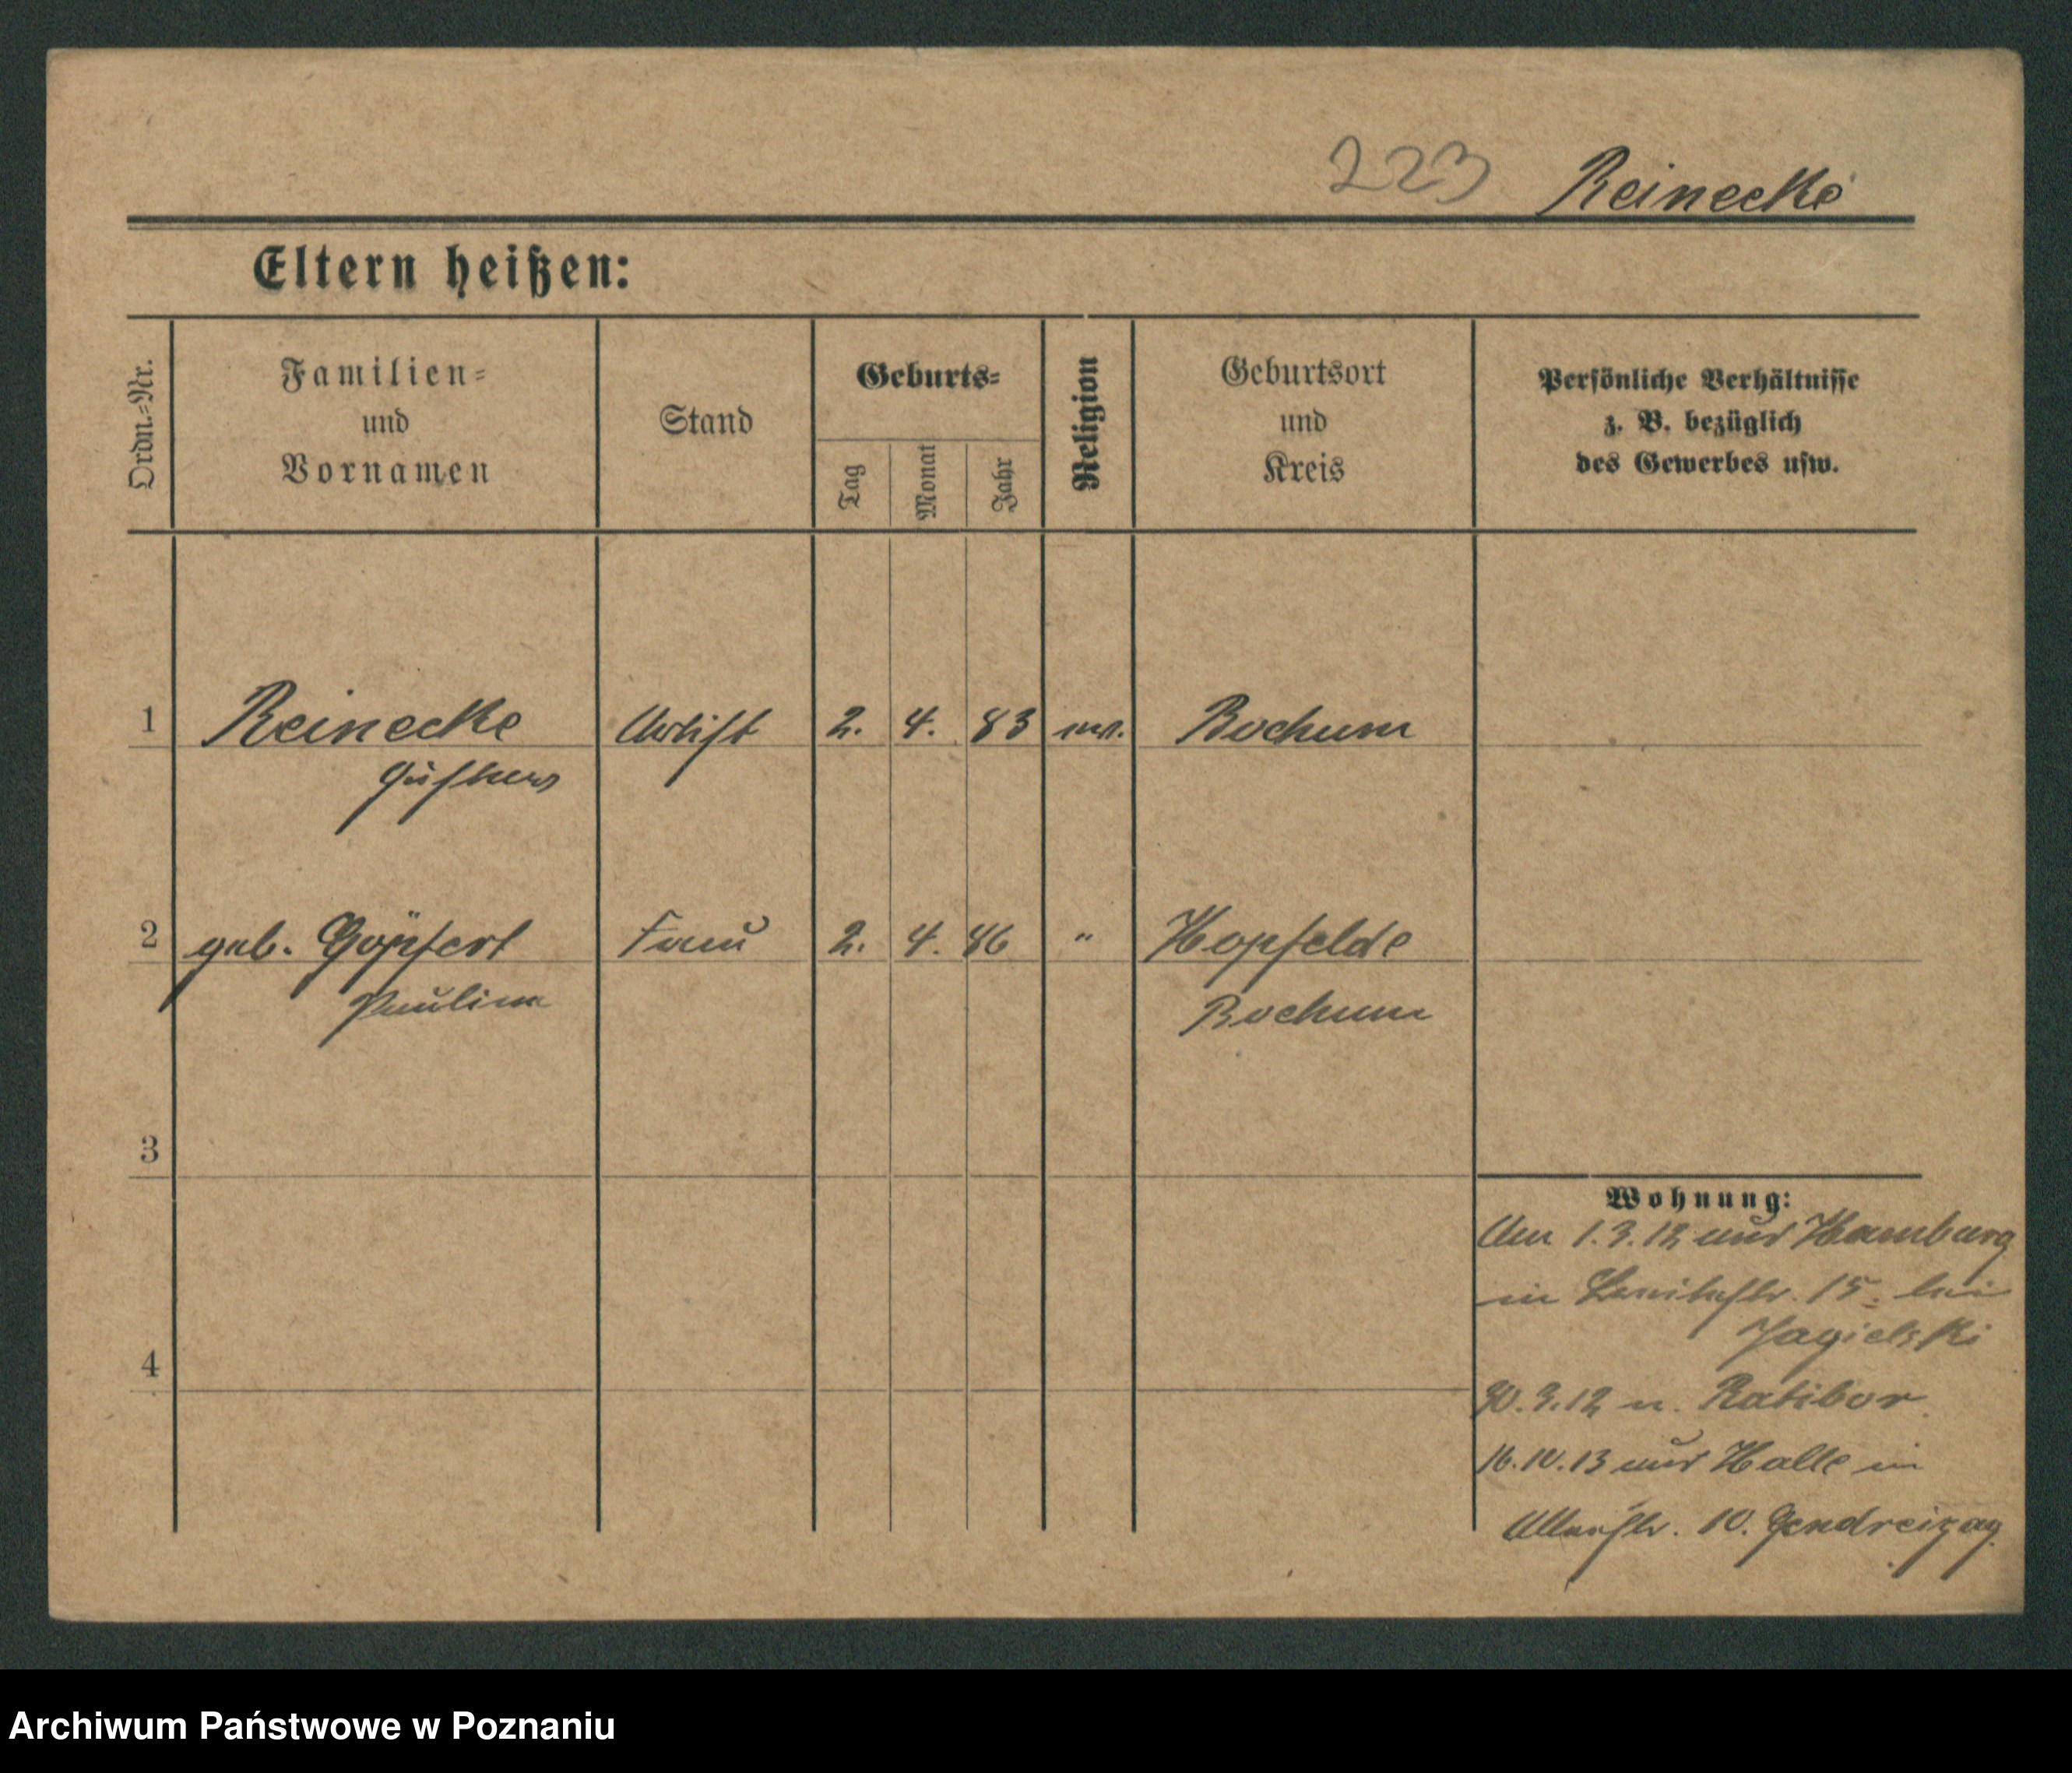 223 Reinecke
Eltern heißen:
Ordn.=Nr.
Familien=
und
Vornamen
Stand
Geburts=
Tag
Monat
Jahr
Religion
Geburtsort
und
Kreis
Persönliche Verhältnisse
z. B. bezüglich
des Gewerbes usw.
1 Reinecke Artist 2. 4. 83 ev. Bochum
Gustav
2 geb. Göpfert Frau 2. 4. 86 " Hopfelde
Pauline Bochum
3
4
Wohnung:
Am 1.3.12 aus Hamburg
in 15. bei
Jagielski
30.3.12 n. Ratibor
16.10.13 aus Halle in
10. Gendreizag
Archiwum Państwowe w Poznaniu